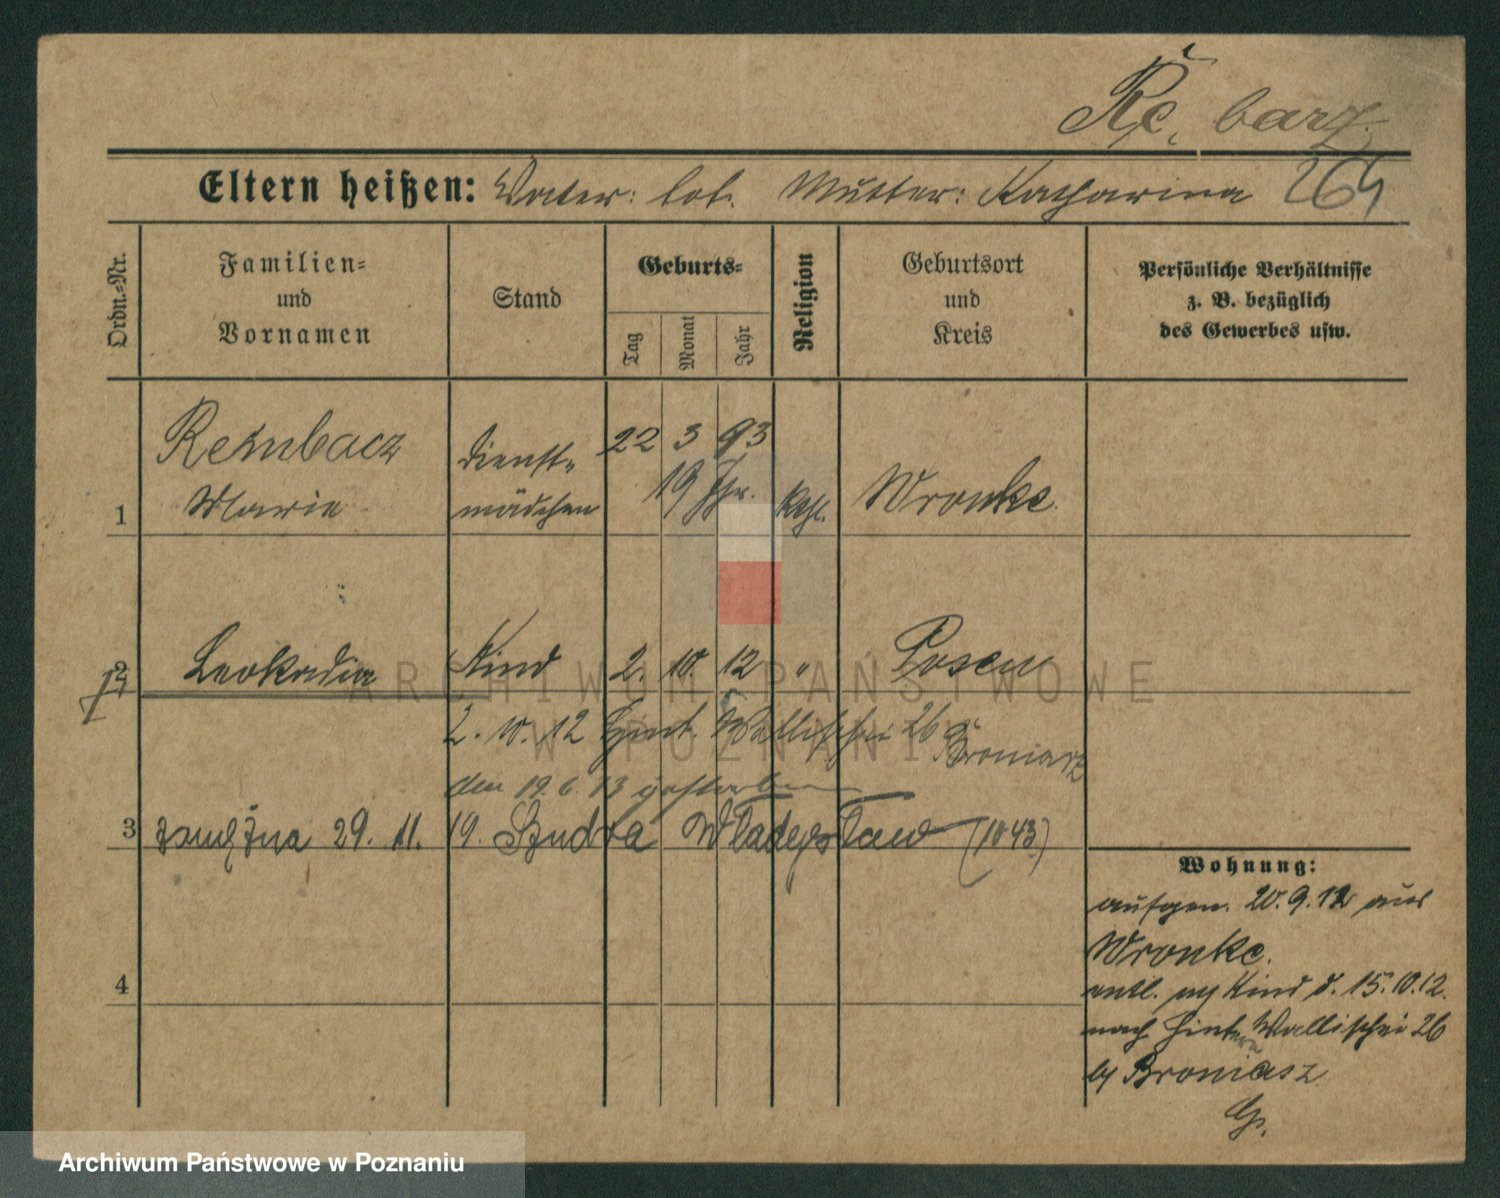 barz
Eltern heißen: Vater: Mutter: Katharina 264
Ordn.-Nr.
Familien-
und
Vornamen
Stand
Geburts-
Tag
Monat
Jahr
Religion
Geburtsort
und
Kreis
Persönliche Verhältnisse
z. B. bezüglich
des Gewerbes usw.
Rembacz Dienst- 22 3 93
19 Jhr.
1 Marie mädchen kath. Wronke
2 Leokadia Kind 2. 10. 12 " Posen
2. 10. 12 Hint. Wallischei 26
Broniarz
den 19. 6. 13 gestorben
3 zamężna 29. 11. 19. Szudra Władysław (1043)
Wohnung:
aufgen. 20. 9. 12 aus
Wronke.
4
entl. Kind d. 15. 10. 12.
nach Hinter Wallischei 26
Broniasz
ARCHIWUM PAŃSTWOWE
W POZNANIU
Archiwum Państwowe w Poznaniu